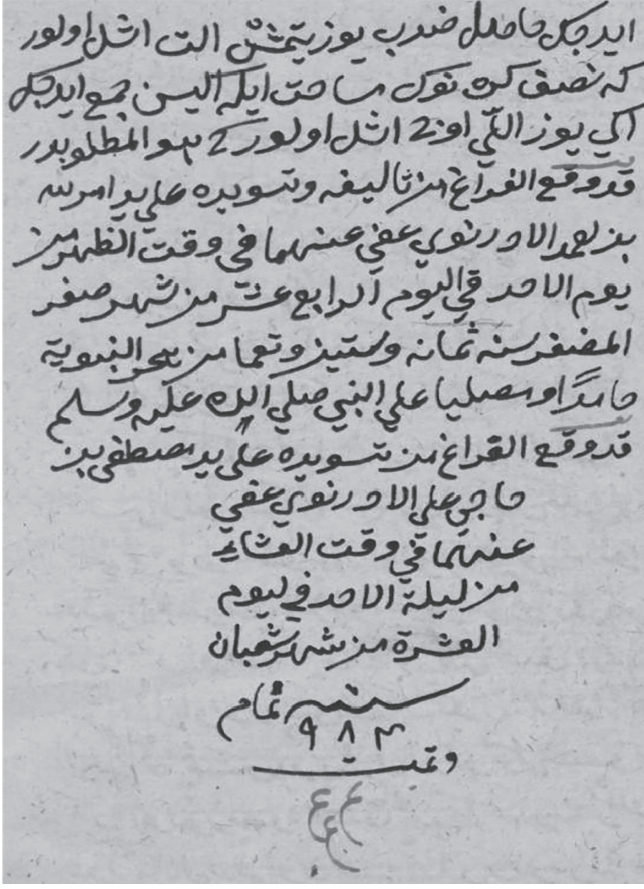 ايدجك حاصل ضرب يوز يتمش التى اشل اولور
كه نصف كره نوك مساحت ايله اليسن جمع ايدجك
اكي يوز اللّي اوج اشل اولور كه هو المطلوبدر
قد وقع الفراغ من تأليفه وتسويده علي يد امرالله
بن محمد الادرنوي عفي عنهما في وقت الظهر من
يوم الاحد في اليوم الرابع عشر من شهر صفر
المضفر سنه ثمانه وستين وتعما من هجر النبوية
حامدًا ومصليا علي النبي صلي الله عليه وسلم
قد وقع الفراغ من تسويده علي يد مصطفى بن
حاجي علي الادرنوي عفي
عنهما في وقت العشاء
من ليلة الاحد في ليوم
العشرة من شهر شعبان
سنه تمام
٩٨٣
وتمت